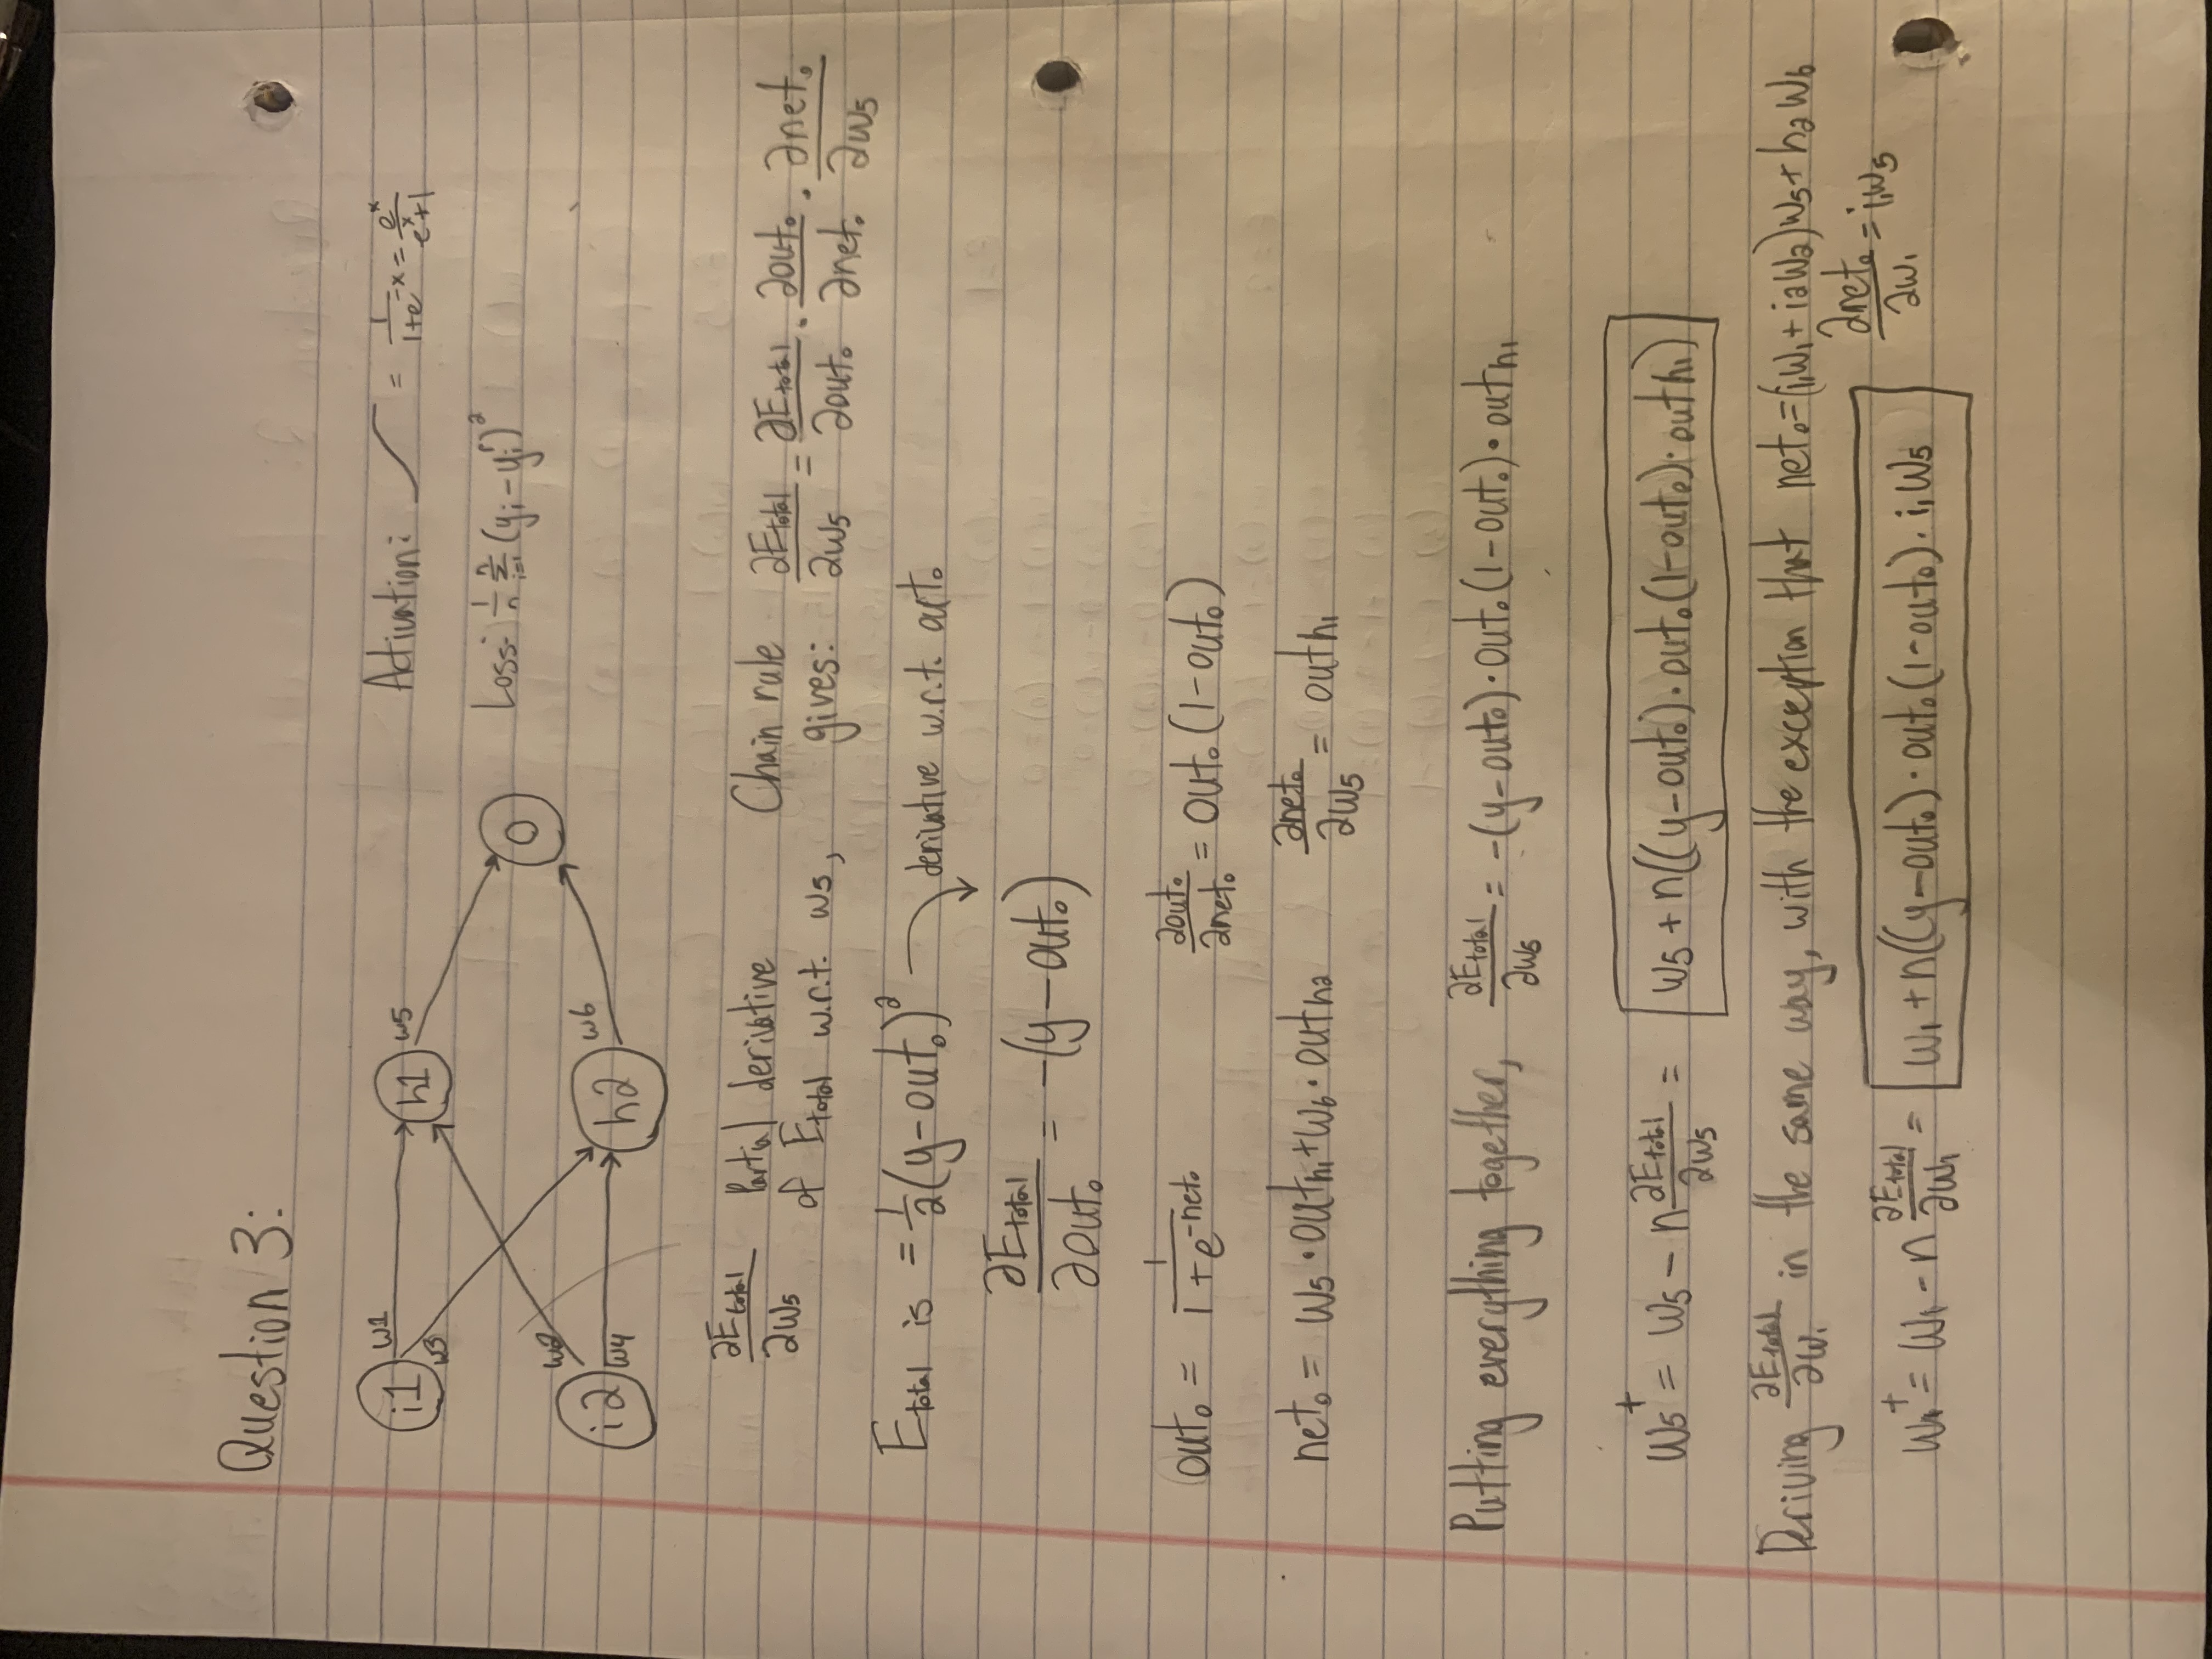 Question 3:
i1 w1 h1 w5
w3
Activation: = 1/(1+e^-x) = e^x/(e^x+1)
Loss: 1/n Σ_{i=1}^{n} (y_i - y_i^p)^2
O
w2
i2 w4 h2 w6
∂E_total/∂w5 Partial derivative of E_total w.r.t. w5,
Chain rule gives: ∂E_total/∂w5 = ∂E_total/∂out_o · ∂out_o/∂net_o · ∂net_o/∂w5
E_total is = 1/2(y-out_o)^2 derivative w.r.t. out_o
∂E_total/∂out_o = -(y-out_o)
out_o = 1/(1+e^-net_o) ∂out_o/∂net_o = out_o(1-out_o)
net_o = w5·out_h1+w6·out_h2 ∂net_o/∂w5 = out_h1
Putting everything together, ∂E_total/∂w5 = -(y-out_o)·out_o(1-out_o)·out_h1
w5^+ = w5 - n ∂E_total/∂w5 = w5 + n((y-out_o)·out_o(1-out_o)·out_h1)
Deriving ∂E_total/∂w1 in the same way, with the exception that net_o=(i1w1+i2w2)w5+h2w6
∂net_o/∂w1 = i1w5
w1^+ = w1 - n ∂E_total/∂w1 = w1 + n((y-out_o)·out_o(1-out_o)·i1w5